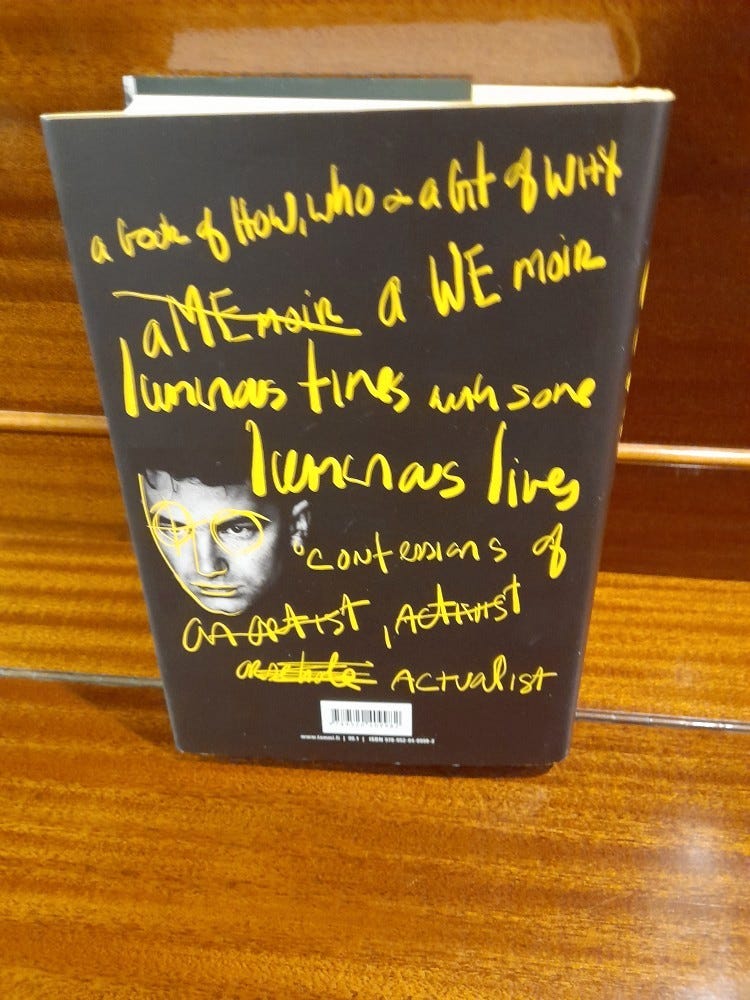 a book of HOW, WHO & a Gt of WHY
a MEmoir a WE moir
luminous times with some
luminous lives
confessions of
an artist, ACTIVIST
ACTUALIST
www.tammi.fi | 99.1 | ISBN 978-952-04-